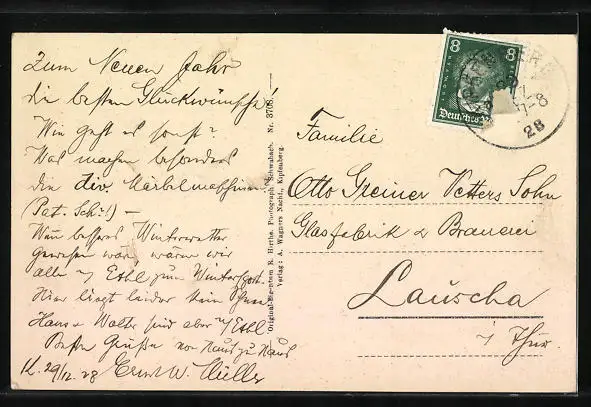 Zum Neuen Jahr
die besten Glückwünsche!
Wie geht es sonst?
Was machen besonders
die div. Märbelmaschinen
(Pat. Sch.!) –
Wenn besseres Winterwetter
gewesen wär, wären wir
alle n/ zum Wintersport.
Hier liegt leider kein Schnee
Hans & Walter sind aber n/
Beste Grüße von Haus zu Haus
29/12.28 Ernst W. Müller
Original-Eigentum R. Herths, Photograph Schwabach. Nr. 3708.
Verlag: A. Wagners Nachf., Kipfenberg.
8 8
Deutsches
7-8
28
Familie
Otto Greiner Vetters Sohn
Glasfabrik & Brauerei
Lauscha
i/ Thür.